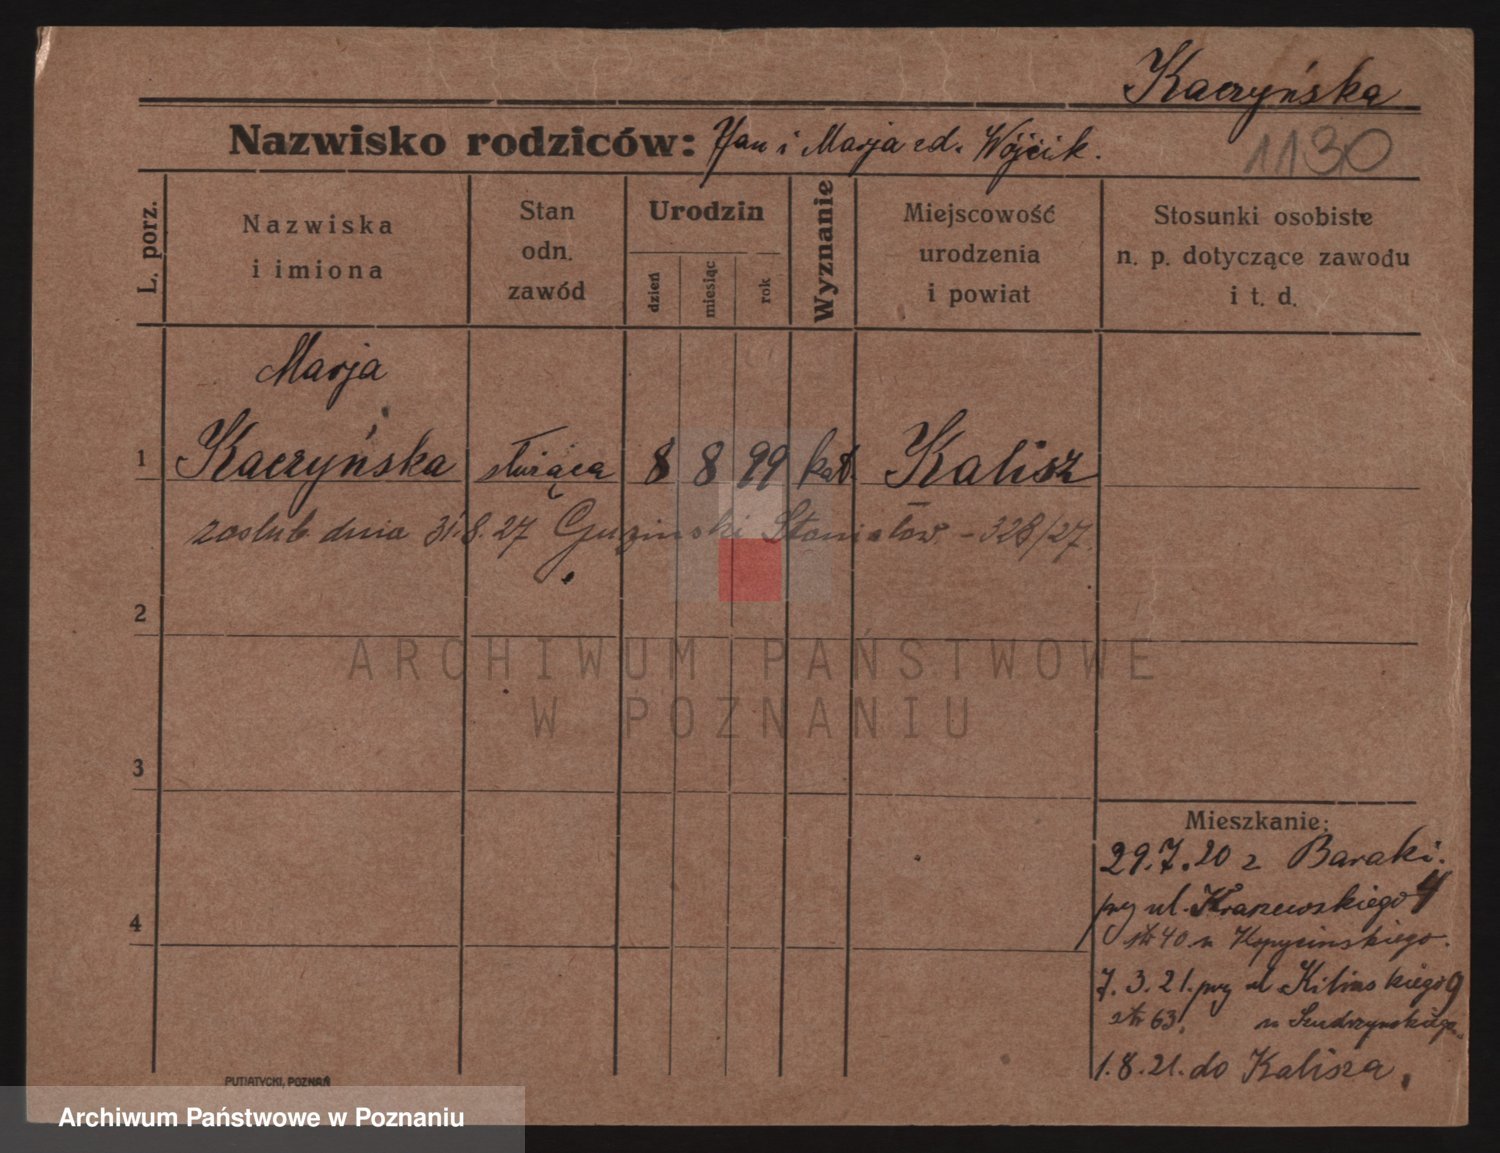 Kaczyńska
Nazwisko rodziców: Jan i Marja zd. Wójcik.
1130
L. porz.
Nazwiska
i imiona
Stan
odn.
zawód
Urodzin
dzień
miesiąc
rok
Wyznanie
Miejscowość
urodzenia
i powiat
Stosunki osobiste
n. p. dotyczące zawodu
i t. d.
Marja
1 Kaczyńska służąca 8 8 99 kat. Kalisz
zaslub. dnia 31.8.27 Guziński Stanisław - 328/27.
2
3
4
Mieszkanie:
29.7.20 z Baraki.
przy ul. Kraszewskiego 4
str 40 u Kopycinskiego.
7.3.21. przy ul Kilinskiego 9
str 63. u
1.8.21. do Kalisza.
PUTIATYCKI, POZNAŃ
ARCHIWUM PAŃSTWOWE
W POZNANIU
Archiwum Państwowe w Poznaniu